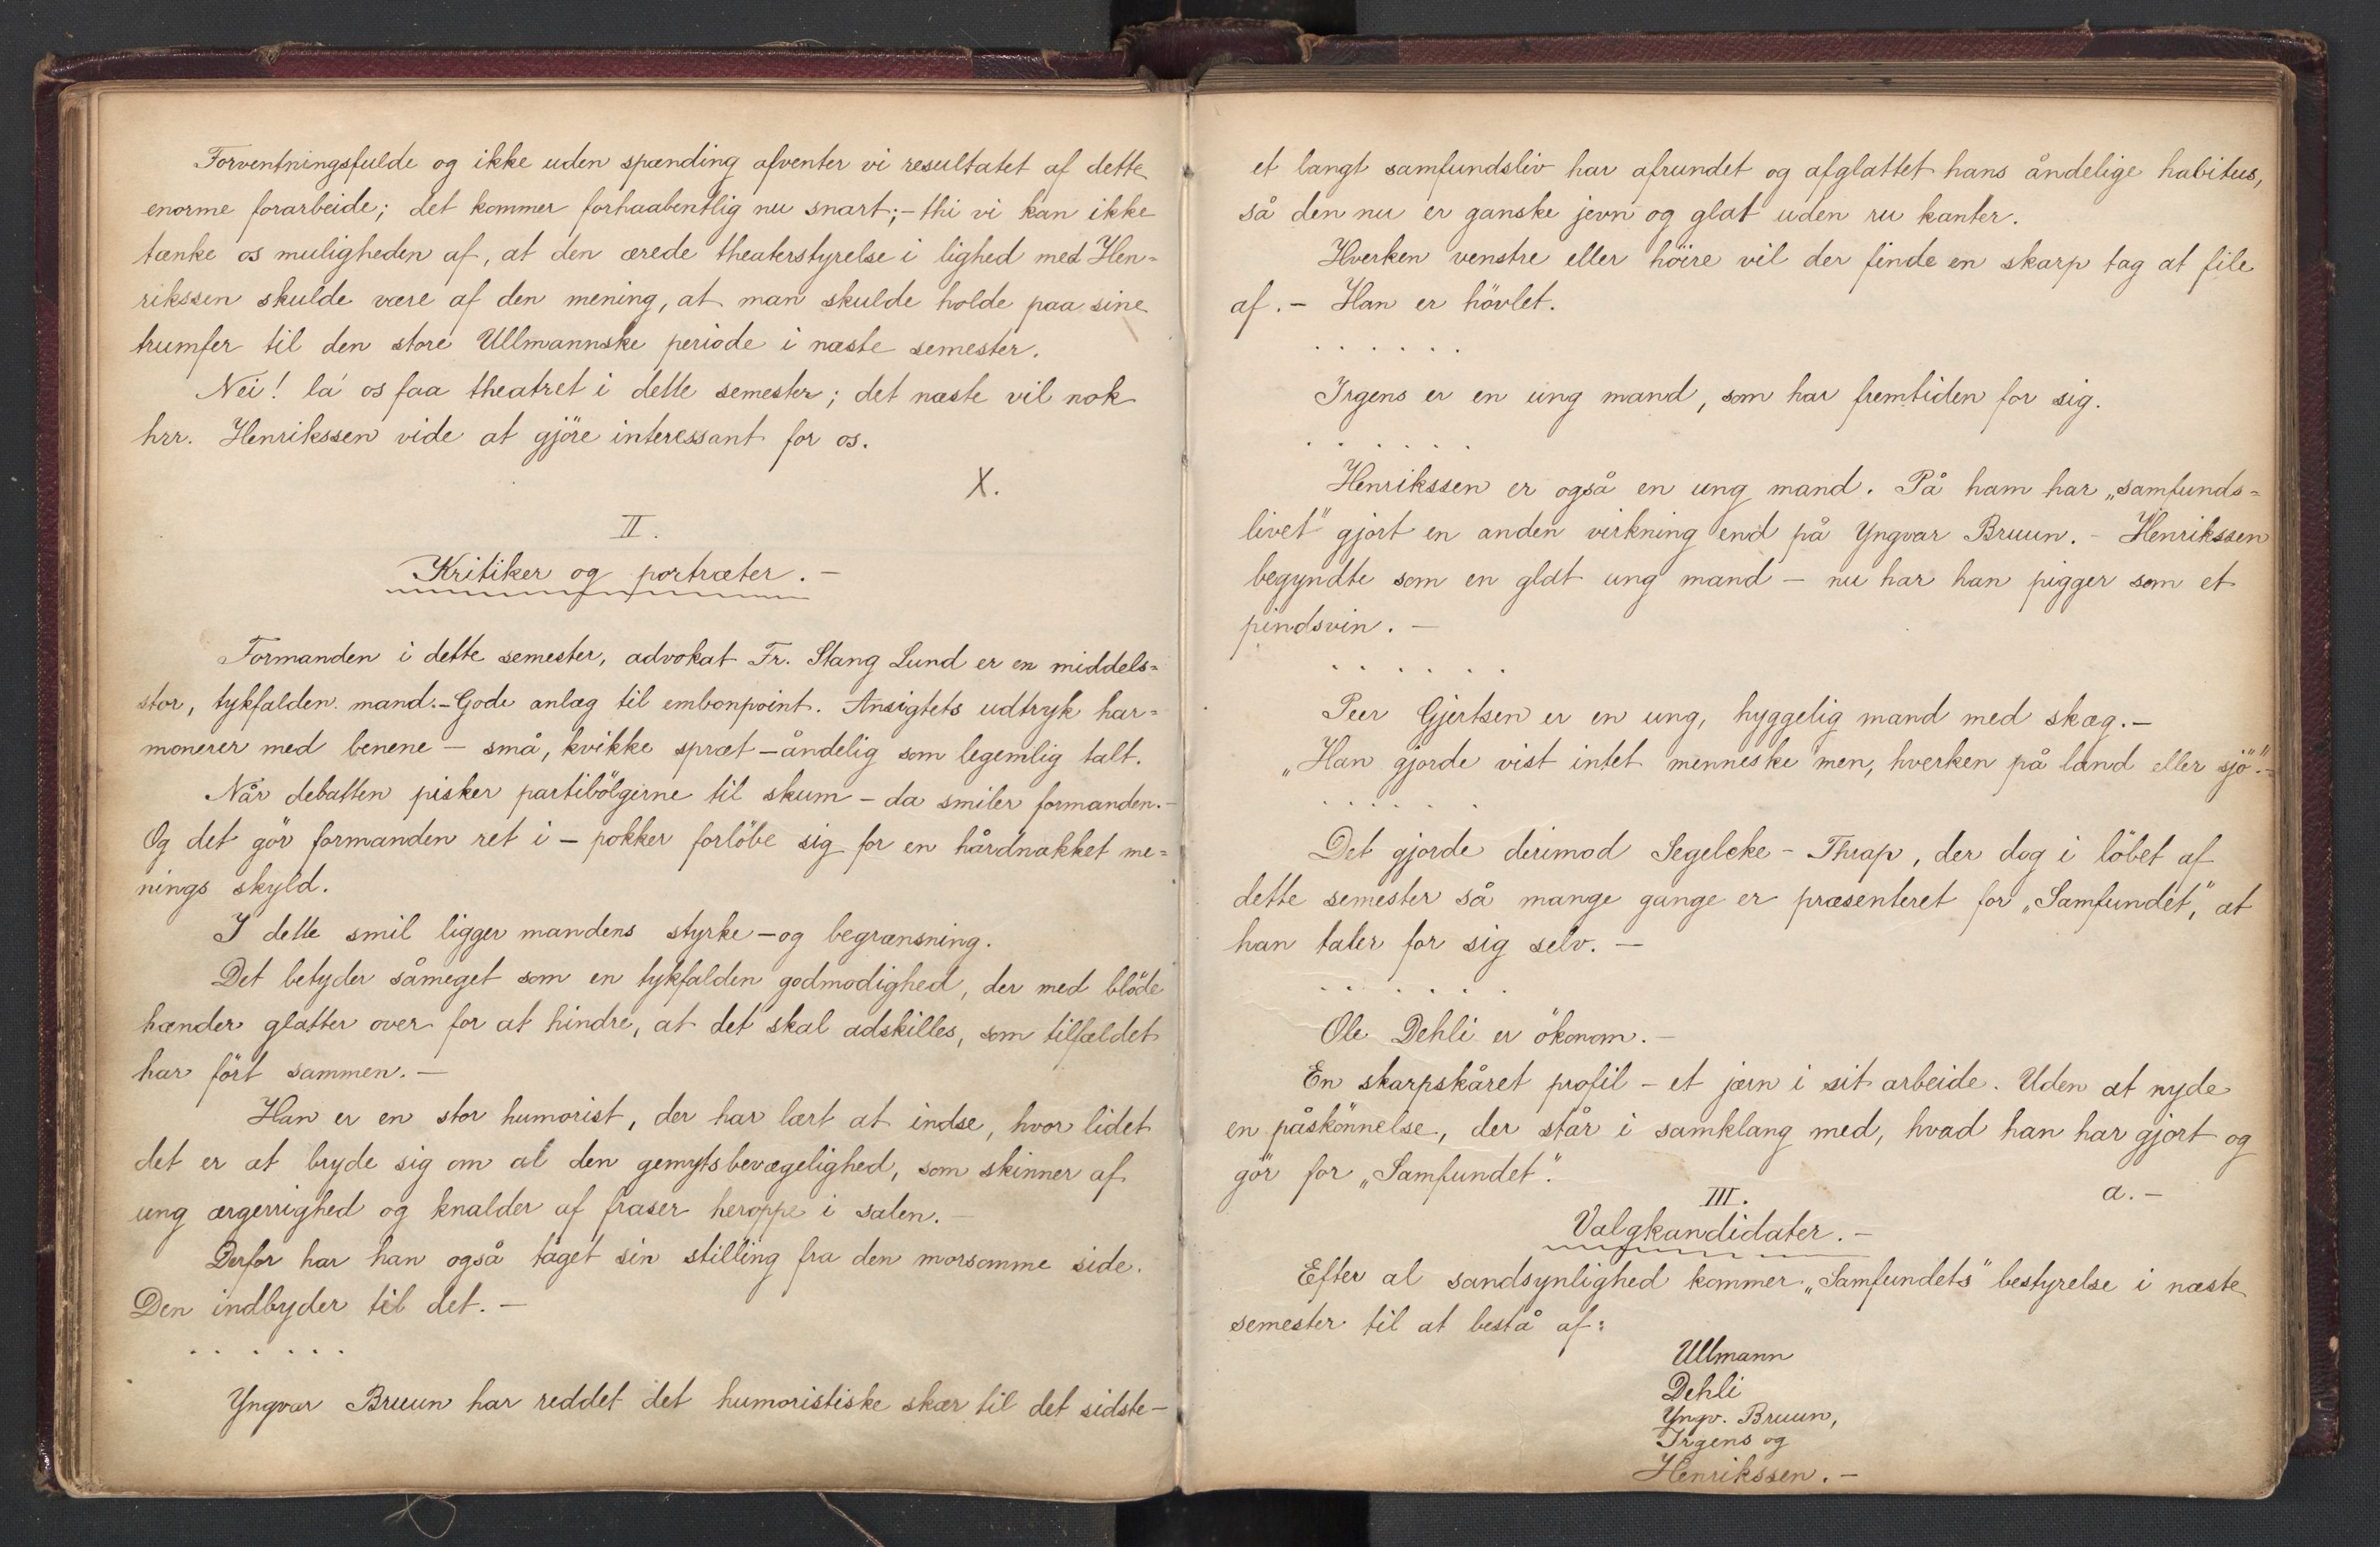 Forventningsfulde og ikke uden spænding afventer vi resultatet af dette
enorme forarbeide; det kommer forhaabentlig nu snart; - thi vi kan ikke
tænke os muligheden af, at den ærede theaterstyrelse i lighed med Hen=
rikssen skulde være af den mening, at man skulde holde paa sine
trumfer til den store Ullmannske periode i næste semester.
Nei! la os faa theatret i dette semester; det næste vil nok
hrr. Henrikssen vide at gjöre interessant for os.
X.
II.
Kritiker og portræter. -
Formanden i dette semester, advokat Fr. Stang Lund er en middels=
stor, tykfalden mand. - Gode anlæg til embonpoint. Ansigtets udtryk har=
monerer med benene - små, kvikke spræt - åndelig som legemlig talt.
Når debatten pisker partibölgerne til skum - da smiler formanden. -
Og det gör formanden ret i - pokker forlöbe sig for en hårdnakket me=
nings skyld.
I dette smil ligger mandens styrke - og begrænsning.
Det betyder såmeget som en tykfalden godmodighed, der med blöde
hænder glatter over for at hindre, at det skal adskilles, som tilfældet
har fört sammen. -
Han er en stor humorist, der har lært at indse, hvor lidet
det er at bryde sig om al den gemytsbevægelighed, som skinner af
ung ærgerrighed og knalder af fraser heroppe i salen. -
Derfor har han også taget sin stilling fra den morsomme side.
Den indbyder til det. -
. . . . . .
Yngvar Bruun har reddet det humoristiske skær til det sidste -
et langt samfundsliv har afrundet og afglattet hans åndelige habitus,
så den nu er ganske jevn og glat uden ru kanter.
Hverken venstre eller höire vil der finde en skarp tag at file
af. - Han er hövlet.
. . . . . .
Irgens er en ung mand, som har fremtiden for sig.
. . . . . .
Henrikssen er også en ung mand. På ham har „samfunds=
livet" gjort en anden virkning end på Yngvar Bruun. - Henrikssen
begyndte som en glat ung mand - nu har han pigger som et
pindsvin. -
. . . . . .
Peer Gjertsen er en ung, hyggelig mand med skæg. -
„Han gjorde vist intet menneske men, hverken på land eller sjö". -
. . . . . .
Det gjorde derimod Segelcke - Thrap, der dog i löbet af
dette semester så mange gange er præsenteret for „Samfundet", at
han taler for sig selv. -
. . . . . .
Ole Dehli er ökonom. -
En skarpskåret profil - et jærn i sit arbeide. Uden at nyde
en påskönnelse, der står i samklang med, hvad han har gjort og
gör for „Samfundet".
a. -
III.
Valgkandidater. -
Efter al sandsynlighed kommer „Samfundets" bestyrelse i næste
semester til at bestå af:
Ullmann
Dehli
Yngv. Bruun,
Irgens og
Henrikssen. -